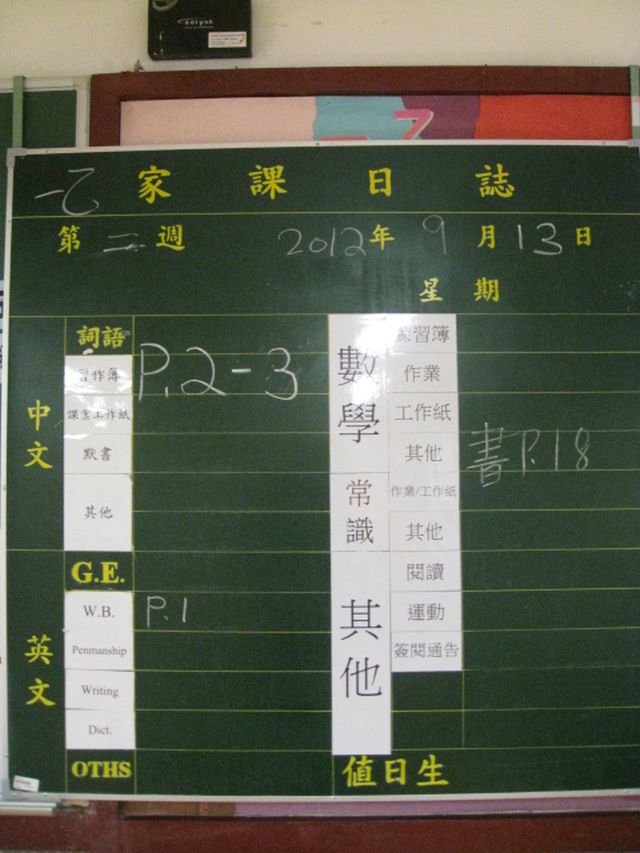 一乙 家課日誌
第二週 2012年9月13日
星期
中文
詞語
習作簿 P.2-3
課堂工作紙
默書
其他
英文
G.E.
W.B. P.1
Penmanship
Writing
Dict.
OTHS
數學
練習簿
作業
工作紙
其他 書P.18
常識
作業/工作紙
其他
其他
閱讀
運動
簽閱通告
值日生